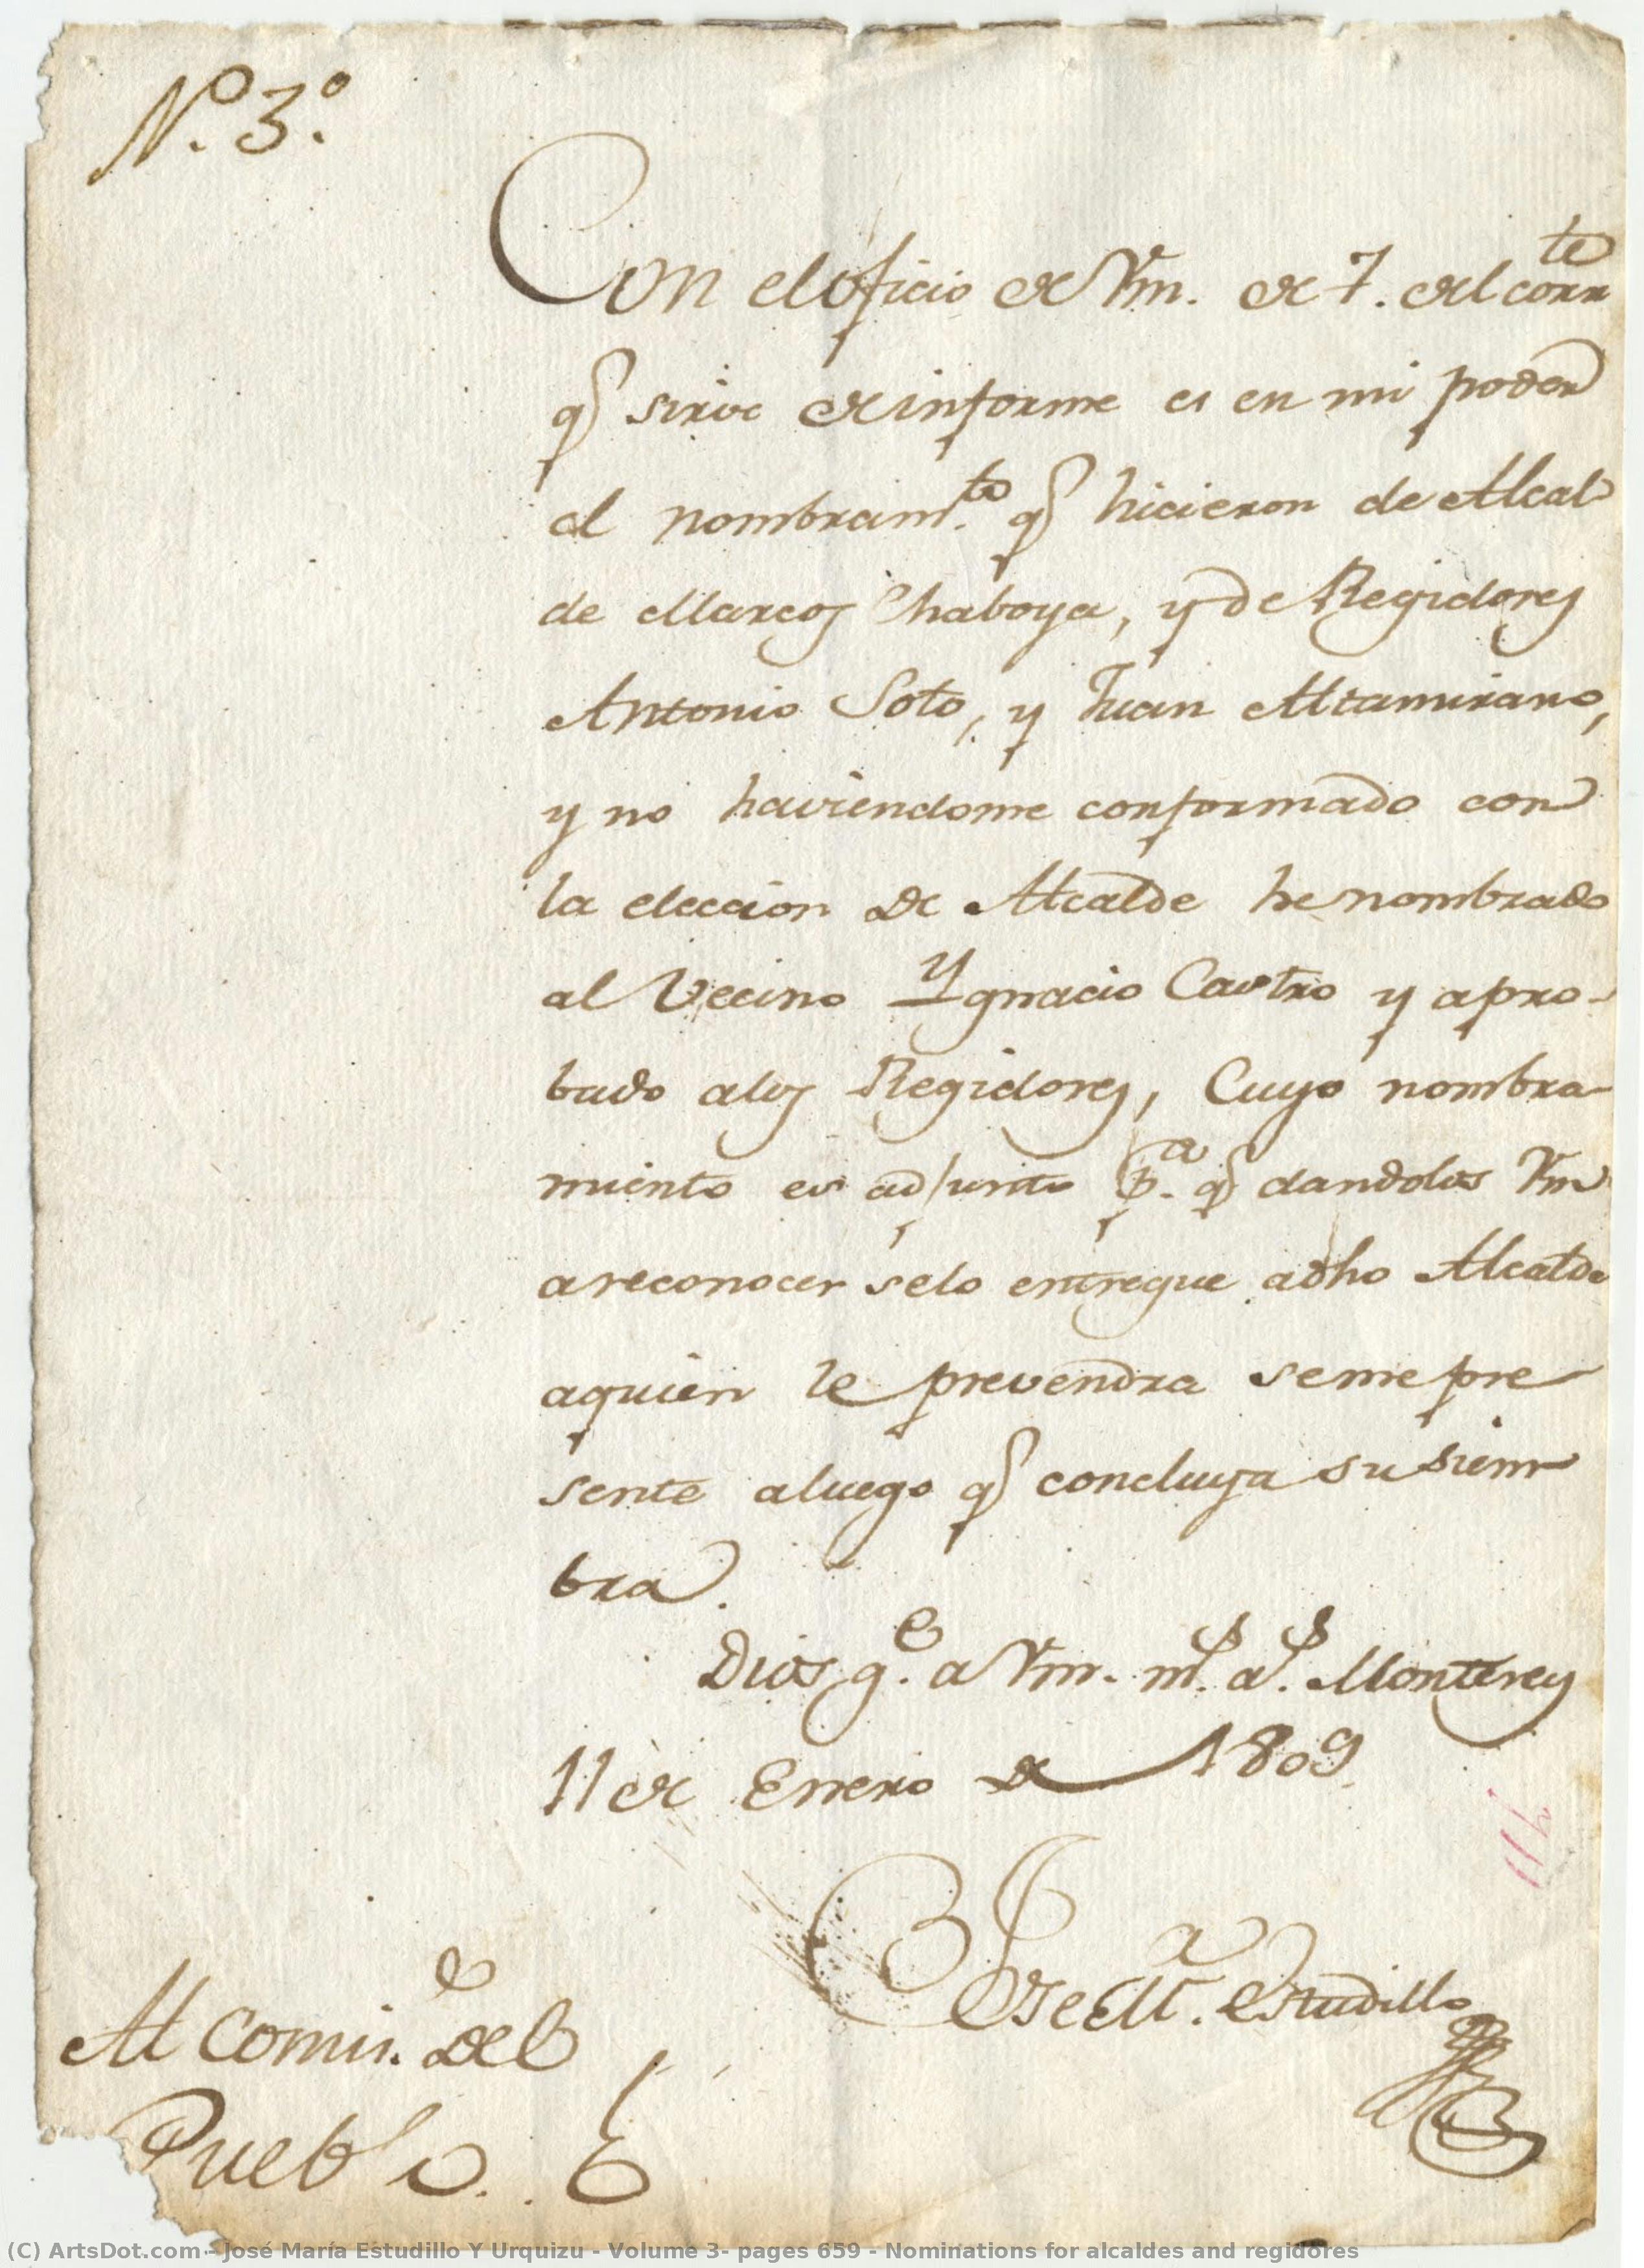 N.º 3.º
Con el oficio de Vm. de 7. del corrte
q.e sirve de informe es en mi poder
el nombram.to q.e hicieron de Alcal
de Marcos Chaboya, y de Regidores
Antonio Soto, y Juan Altamirano,
y no haviendome conformado con
la eleccion de Alcalde he nombrado
al Vecino Ygnacio Castro y apro-
bado alos Regidores, Cuyo nombra-
miento es adjunto p.a q.e dandolos Vm
areconocer selo entregue adho Alcalde
aquien le prevendra seme pre
sente aluego q.e concluya su siem
bra.
Dios g.e a Vm. m.s a.s Monterey
11 de Enero de 1809
Jose M.a Estudillo
Al Comis.do del
Pueblo.
(C) ArtsDot.com - José María Estudillo Y Urquizu - Volume 3- pages 659 - Nominations for alcaldes and regidores